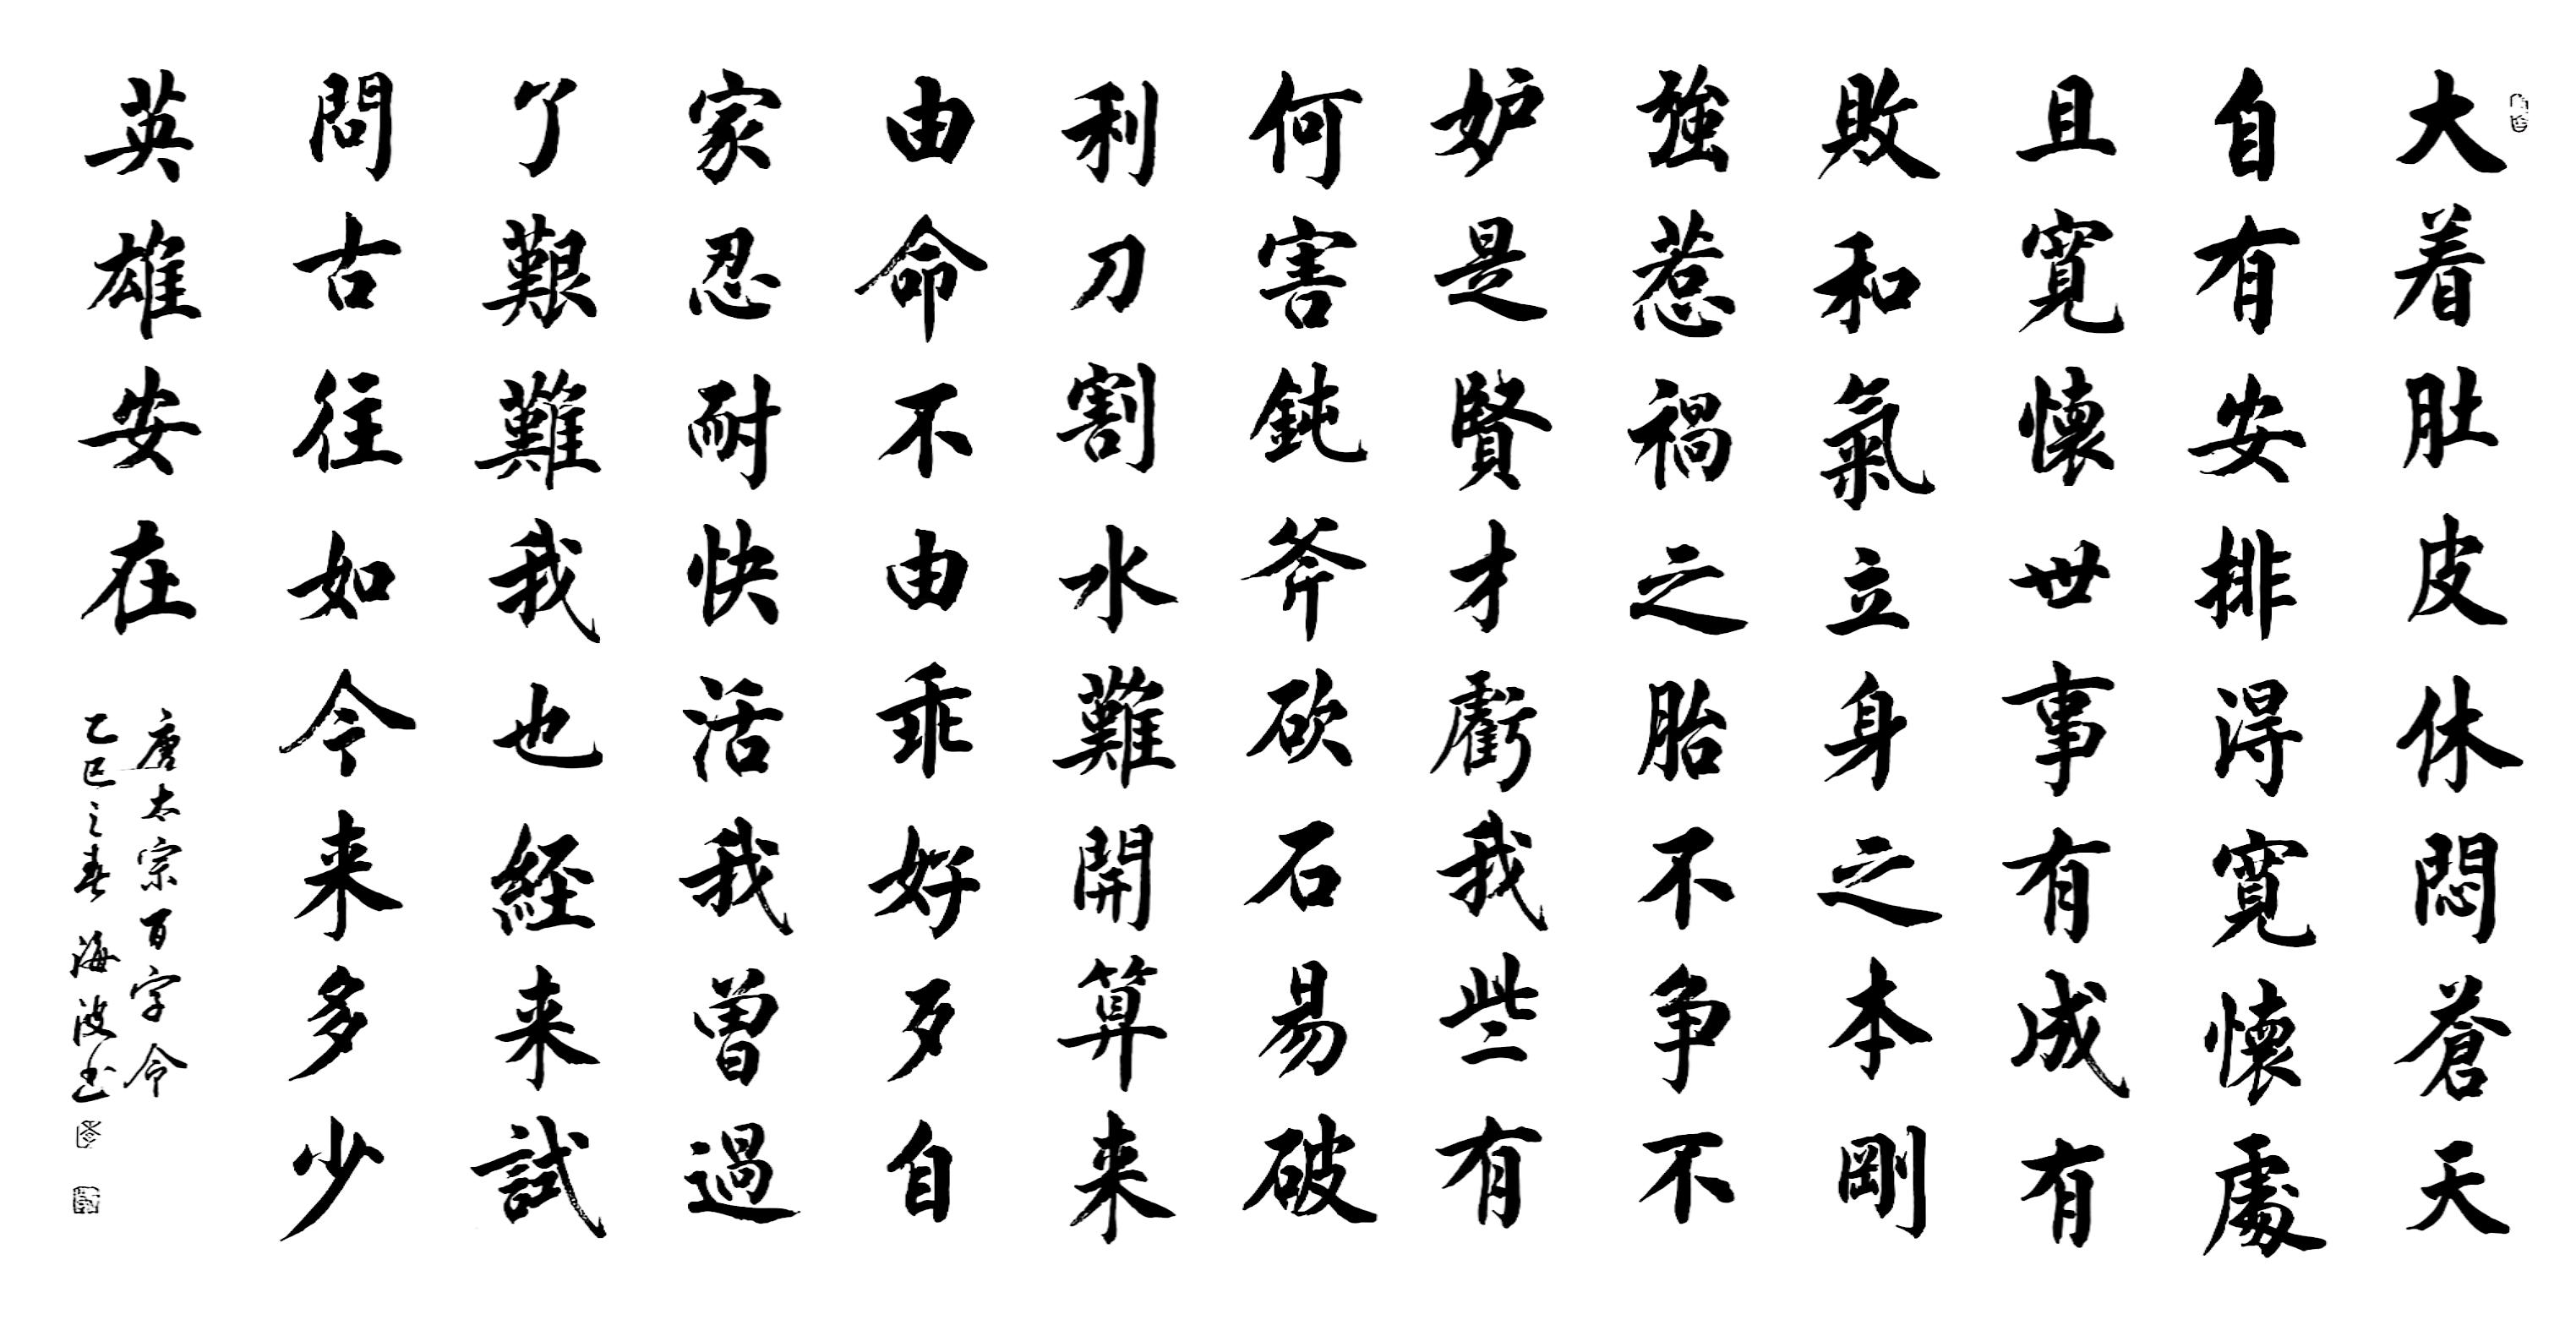 大着肚皮休悶蒼天
自有安排得寬懷處
且寬懷世事有成有
敗和氣立身之本剛
強惹禍之胎不争不
妒是賢才虧我些有
何害鈍斧砍石易破
利刀割水難開算来
由命不由乖好歹自
家忍耐快活我曾過
了艱難我也経来試
問古往如今来多少
英雄安在
唐太宗百字令
乙巳之春 海波书